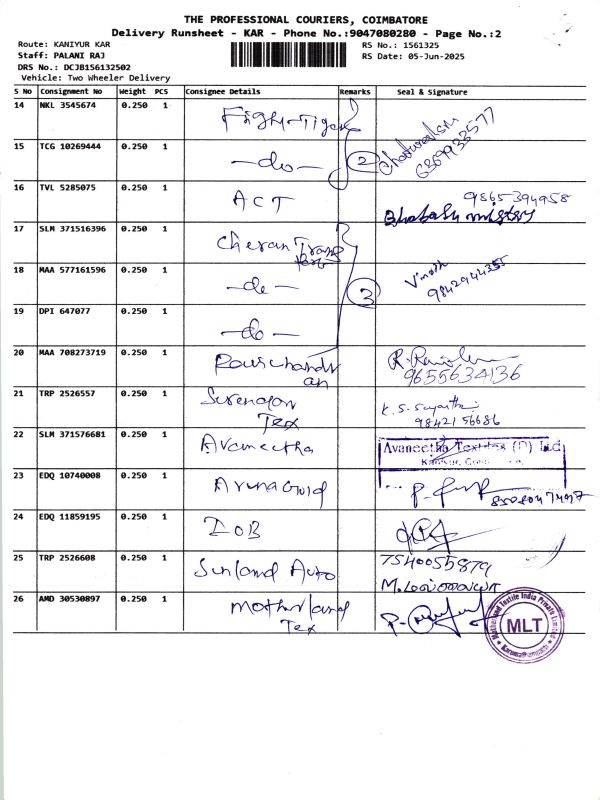 THE PROFESSIONAL COURIERS, COIMBATORE
Delivery Runsheet - KAR - Phone No.:9047080280 - Page No.:2
Route: KANIYUR KAR
RS No.: 1561325
Staff: PALANI RAJ
RS Date: 05-Jun-2025
DRS No.: DCJB156132502
Vehicle: Two Wheeler Delivery
S No Consignment No Weight PCS Consignee Details Remarks Seal & Signature
14 NKL 3545674 0.250 1 Fight-Tiger
15 TCG 10269444 0.250 1 -do- 2
16 TVL 5285075 0.250 1 ACT 9865394958
17 SLM 371516396 0.250 1 Cheran Trans
18 MAA 577161596 0.250 1 -do- 3 Vinoth 9842944355
19 DPI 647077 0.250 1 -do-
20 MAA 708273719 0.250 1 9655634136
21 TRP 2526557 0.250 1 Tex 9842156686
22 SLM 371576681 0.250 1 Avaneetha Avaneetha Textiles (P) Ltd
23 EDQ 10740008 0.250 1 Aruna Gold
24 EDQ 11859195 0.250 1 IOB
25 TRP 2526608 0.250 1 Sunland Auto 7540055879
26 AMD 30530897 0.250 1 Motherland Tex
Motherland Textile India Private Limited
MLT